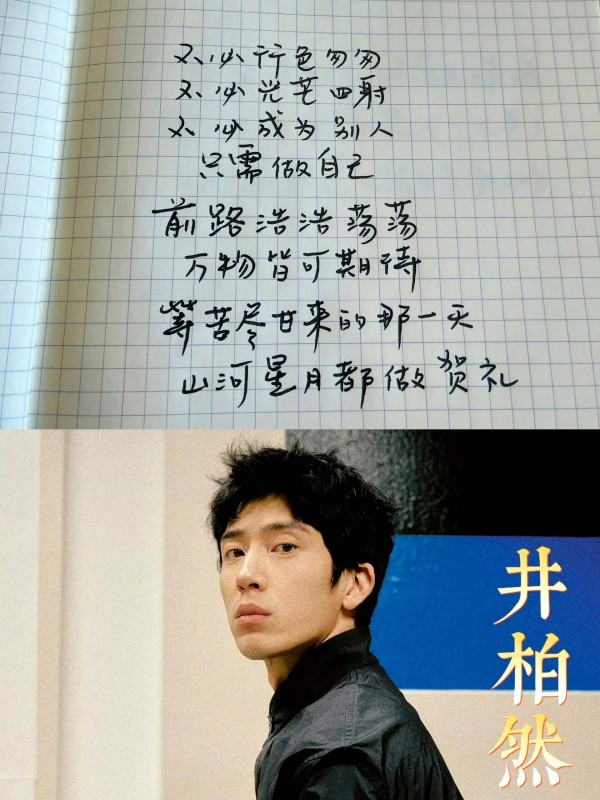 不必行色匆匆
不必光芒四射
不必成为别人
只需做自己
前路浩浩荡荡
万物皆可期待
等苦尽甘来的那一天
山河星月都做贺礼
井柏然